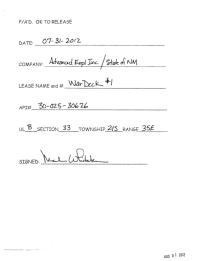 P/A'D. OK TO RELEASE
DATE 07-31-2012
COMPANY Advanced Expl Inc / State of NM
LEASE NAME and # WarDeck #1
API# 30-025-30676
UL B SECTION 33 TOWNSHIP 21S RANGE 35E
SIGNED
AUG 01 2012